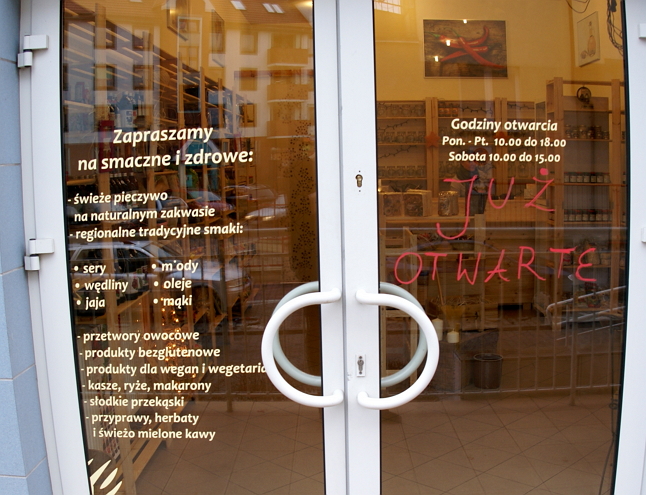 Zapraszamy
na smaczne i zdrowe:
- świeże pieczywo
na naturalnym zakwasie
- regionalne tradycyjne smaki:
• sery
• wędliny
• jaja
• m ody
• oleje
• mąki
- przetwory owocowe
- produkty bezglutenowe
- produkty dla wegan i wegetaria
- kasze, ryże, makarony
- słodkie przekąski
- przyprawy, herbaty
i świeżo mielone kawy
Godziny otwarcia
Pon. - Pt. 10.00 do 18.00
Sobota 10.00 do 15.00
JUŻ
OTWARTE